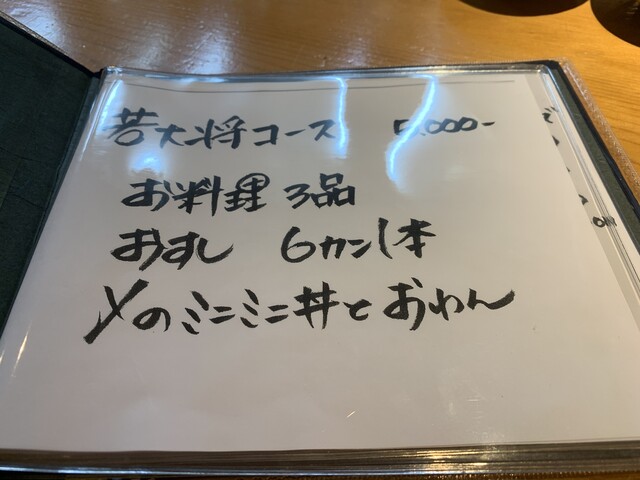 若大将コース 5.000-
お料理 3品
おすし 6カン1本
〆のミニミニ丼とおわん